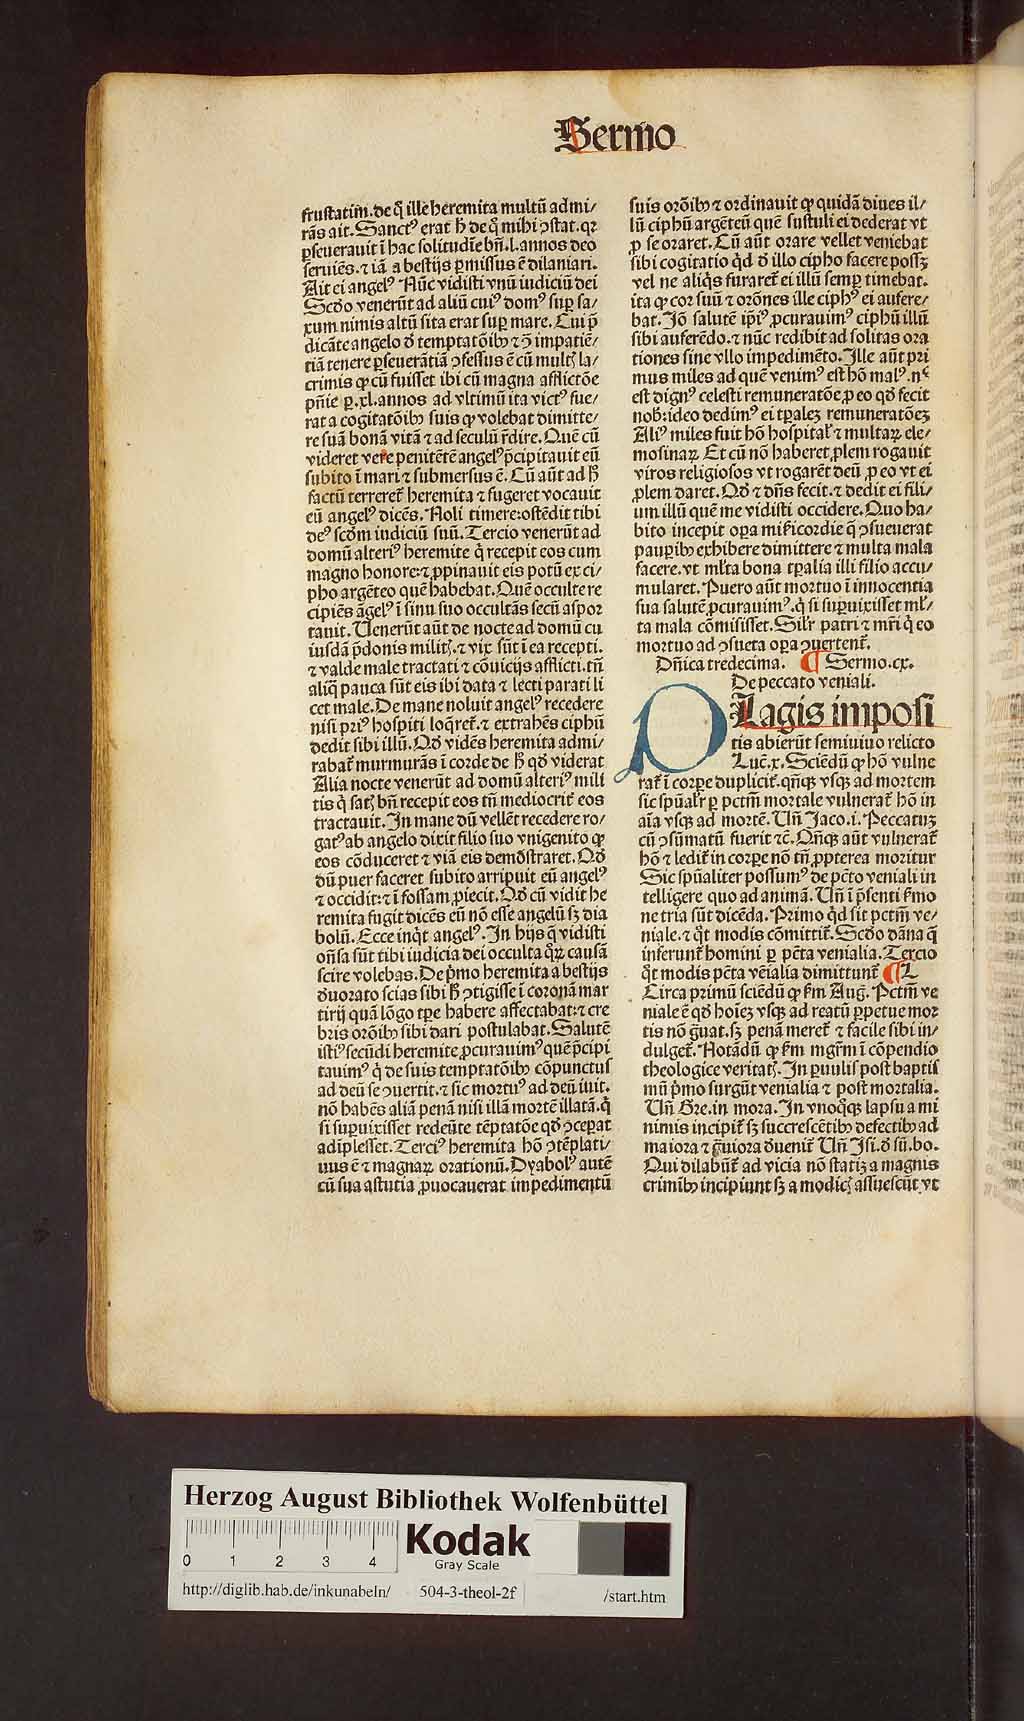 Sermo
frustatim. de qͦ ille heremita multū admi/
rās ait. Sanctꝰ erat h̄ de qͦ mihi ꝯstat. qꝛ
ꝑseuerauit ī hac solitudīe bn̄. l. annos deo
seruiēs. ⁊ iā a bestijs ꝑmissus ē dilaniari.
Ait ei angelꝰ Nūc vidisti vnū iudiciū dei
Scd̄o venerūt ad aliū cuiꝰ domꝰ suꝑ sa/
xum nimis altū sita erat suꝑ mare. Cui p̄
dicāte angelo ō temptatōibꝰ ⁊ ꝙ impatiē/
tiā tenere ꝑseuerātiā ꝯfessus ē cū multꝭ la/
crimis ꝙ cū fuisset ibi cū magna afflictōe
pn̄ie ꝑ. xl. annos ad vltimū ita victꝰ fue/
rat a cogitatōibꝰ suis ꝙ volebat dimitte/
re suā bonā vitā ⁊ ad seculū r̄dire. Quē cū
videret vere penitētē angelꝰ p̄cipitauit eū
subito ī mari ⁊ submersus ē. Cū aūt ad h̄
factū terreret̄ heremita ⁊ fugeret vocauit
eū angelꝰ dicēs. Noli timere: ostēdit tibi
deꝰ scd̄m iudiciū suū. Tercio venerūt ad
domū alteriꝰ heremite q̇ recepit eos cum
magno honore: ⁊ ꝓpinauit eis potū ex ci/
pho argēteo quē habebat. Quē occulte re
cipiēs āgelꝰ ī sinu suo occultās secū aspor
tauit. Uenerūt aūt de nocte ad domū cu
iusdā p̄donis militꝭ. ⁊ vix sūt ī ea recepti.
⁊ valde male tractati ⁊ cōuicijs afflicti. tn̄
aliq̄ pauca sūt eis ibi data ⁊ lecti parati li
cet male. De mane noluit angelꝰ recedere
nisi priꝰ hospiti loq̄ret̄. ⁊ extrahēs ciphū
dedit sibi illū. Qd̄ vidēs heremita admi/
rabat̄ murmurās ī corde de h̄ qd̄ viderat
Alia nocte venerūt ad domū alteriꝰ mili
tis q̇ satꝭ bn̄ recepit eos tn̄ mediocrit̄ eos
tractauit. In mane dū vellēt recedere ro/
gatꝰ ab angelo dixit filio suo vnigenito ꝙ
eos cōduceret ⁊ viā eis demōstraret. Qd̄
dū puer faceret subito arripuit eū angelꝰ
⁊ occidit: ⁊ ī fossam ꝓiecit. Qd̄ cū vidit he
remita fugit dicēs eū nō esse angelū sꝫ dia
bolū. Ecce inq̇t angelꝰ. In hijs q̄ vidisti
on̄sa sūt tibi iudicia dei occulta qͦꝝ causā
scire volebas. De p̄mo heremita a bestijs
ōuorato scias sibi h̄ ꝯtigisse ī coronā mar
tirij quā lōgo tꝑe habere affectabat: ⁊ cre
bris orōibꝰ sibi dari postulabat. Salutē
istiꝰ secūdi heremite ꝓcurauimꝰ quē p̄cipi
tauimꝰ q̇ de suis temptatōibꝰ cōpunctus
ad deū se ꝯuertit. ⁊ sic mortuꝰ ad deū iuit.
nō habēs aliā penā nisi illā mortē illatā. q̇
si suꝑuixisset redeūte tēptatōe qd̄ ꝯceꝑat
adīplesset. Terciꝰ heremita hō ꝯtēplati/
uus ē ⁊ magnaꝝ orationū. Dyabolꝰ autē
cū sua astutia ꝓuocauerat impedimentū
suis orōibꝰ ⁊ ordinauit ꝙ quidā diues il/
lū ciphū argēteū quē sustuli ei dederat vt
ꝓ se oraret. Cū aūt orare vellet veniebat
sibi cogitatio q̇d ō illo cipho facere possꝫ
vel ne aliq̇s furaret̄ ei illū semꝑ timebat.
ita ꝙ cor suū ⁊ orōnes ille ciphꝰ ei aufere/
bat. Iō salutē ip̄iꝰ ꝓcurauimꝰ ciphū illū
sibi auferēdo. ⁊ nūc redibit ad solitas ora
tiones sine vllo impedimēto. Ille aūt pri
mus miles ad quē venimꝰ est hō malꝰ. nᶜ
est dignꝰ celesti remuneratōe. ꝓ eo qd̄ fecit
nob̄: ideo dedimꝰ ei tꝑalez remuneratōez
Aliꝰ miles fuit hō hospital̄ ⁊ multaꝝ ele/
mosinaꝝ. Et cū nō haberet ꝓlem rogauit
viros religiosos vt rogarēt deū ꝓ eo vt ei
ꝓlem daret. Qd̄ ⁊ dn̄s fecit. ⁊ dedit ei fili/
um illū quē me vidisti occidere. Quo ha/
bito incepit oꝑa mīcordie q̄ ꝯsueuerat
pauꝑibꝰ exhibere dimittere ⁊ multa mala
facere. vt ml̄ta bona tꝑalia illi filio accu/
mularet. Puero aūt mortuo ī innocentia
sua salutē ꝓcurauimꝰ. q̇ si suꝑuixisset ml̄/
ta mala cōmisisset. Sil̄r patri ⁊ mr̄i q̇ eo
mortuo ad ꝯsueta oꝑa ꝯuertent̄.
Dn̄ica tredecima. ¶ Sermo. cx.
De peccato veniali.
PLagis imposi
tis abierūt semiuiuo relicto
Luē. x. Sciēdū ꝙ hō vulne
rat̄ ī corꝑe duplicit̄. qn̄qꝫ vsqꝫ ad mortem
sic spūal̄r ꝑ pctm̄ mortale vulnerat̄ hō in
aīa vsqꝫ ad mortē. Un̄ Jaco. i. Peccatuꝫ
cū ꝯsūmatū fuerit ⁊c̄. Qn̄qꝫ aūt vulnerat̄
hō ⁊ ledit̄ in corꝑe nō tn̄ ꝓpterea moritur
Sic spūaliter possumꝰ de pctō veniali in
telligere quo ad animā. Un̄ ī p̄senti s̄mo
ne tria sūt dicēda. Primo q̇d sit pctm̄ ve/
niale. ⁊ q̇t modis cōmittit̄. Scd̄o dāna q̄
inferunt̄ homini ꝑ pctā venialia. Tercio
q̇t modis pctā venialia dimittunt̄ ¶ L
Circa primū sciēdū ꝙ s̄m Auḡ. Pctm̄ ve
niale ē qd̄ hoīez vsqꝫ ad reatū ꝑpetue mor
tis nō g̈uat. sꝫ penā meret̄ ⁊ facile sibi in/
dulget̄. Notādū ꝙ s̄m mgr̄m ī cōpendio
theologice veritatꝭ. In ꝑuulis post baptis
mū p̄mo surgūt venialia ⁊ post mortalia.
Un̄ Gre. in mora. In vnoq̊qꝫ lapsu a mi
nimis incipit̄ sꝫ succrescētibꝰ defectibꝰ ad
maiora ⁊ g̈uiora ōuenit̄ Un̄ Isi. ō sū. bo.
Qui dilabūt̄ ad vicia nō statiꝫ a magnis
crimībꝰ incipiunt sꝫ a modicꝭ assuescūt vt
Herzog August Bibliothek Wolfenbüttel
0 1 2 3 4
Kodak
Gray Scale
http://diglib.hab.de/inkunabeln/ 504-3-theol-2f /start.htm